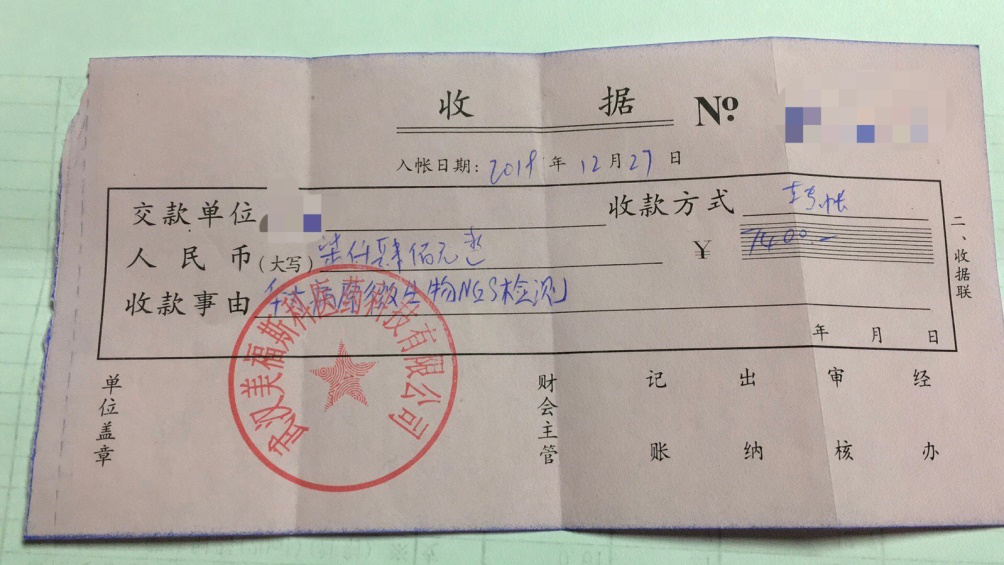 收 据 №
入帐日期: 2019 年 12 月 27 日
交款单位 收款方式 转帐
人民币(大写) 柒仟肆佰元整
¥ 7400.—
收款事由 病菌微生物NGS检测
年 月 日
二、收据联
单位盖章
财会主管
记账
出纳
审核
经办
武汉美福斯科技有限公司